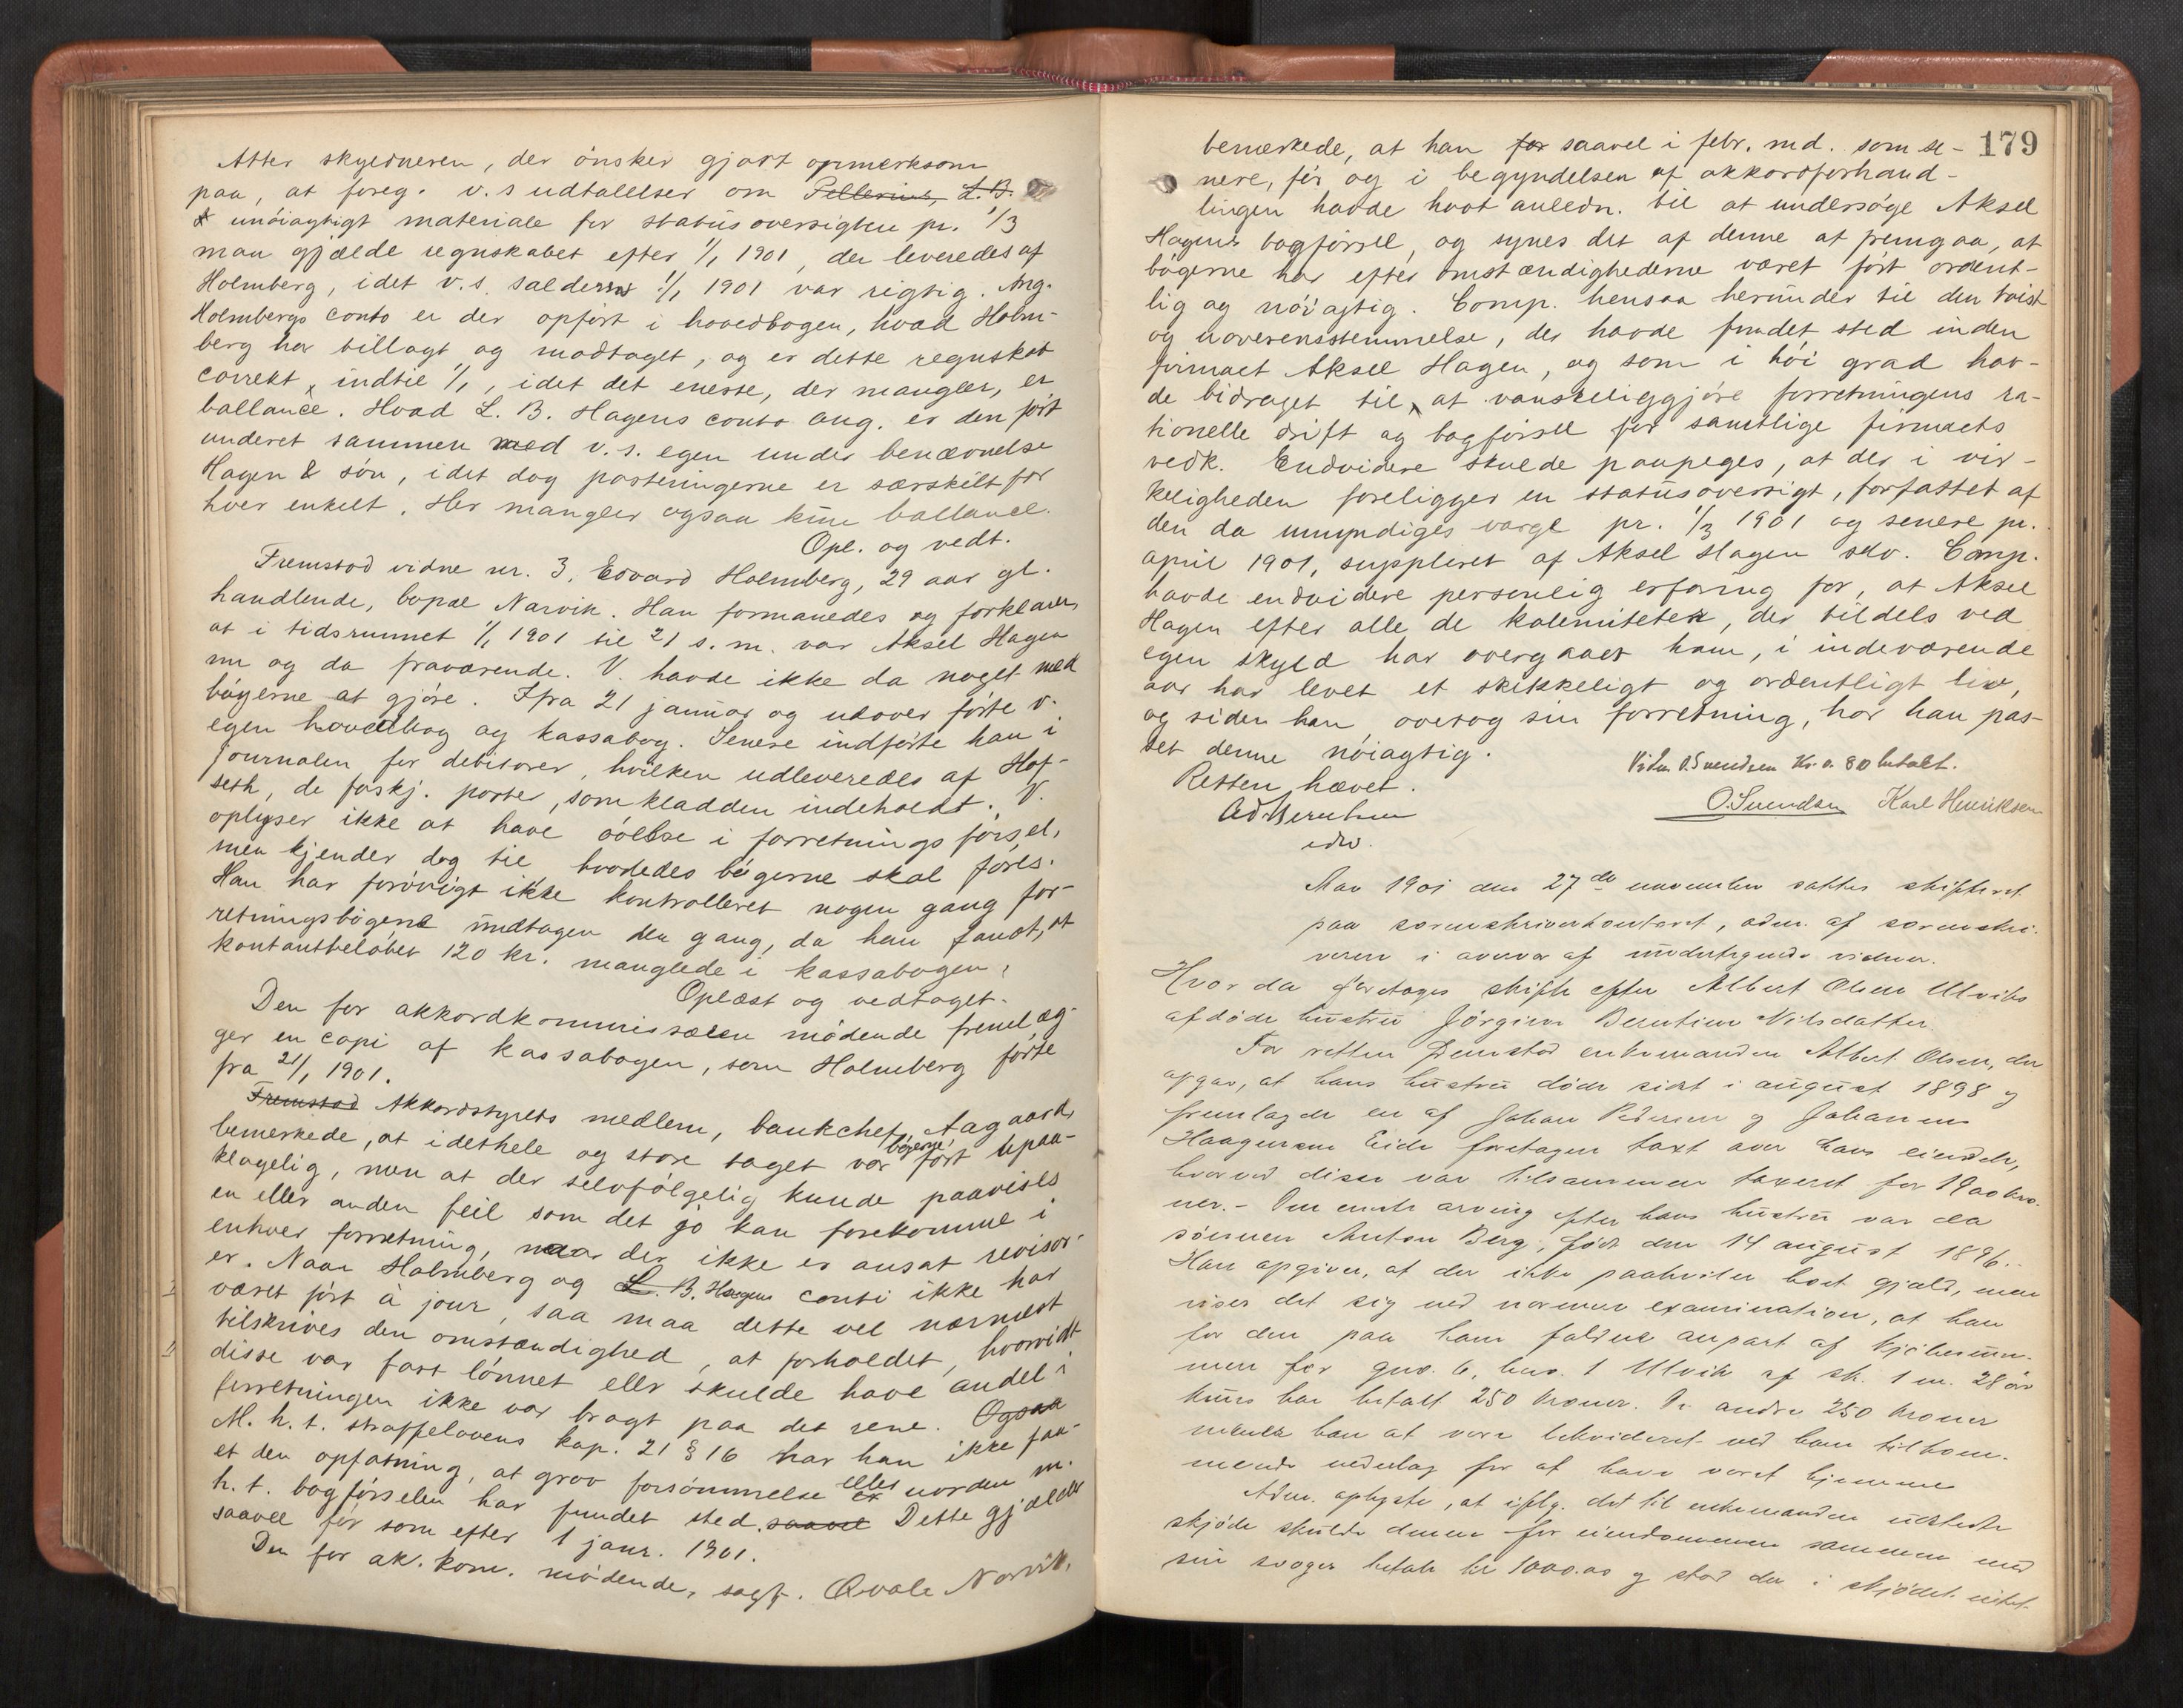 Atter skyldneren, der ønsker gjort opmerksom
paa, at foreg. v.s udtalelser om Pellerins, L.B.
& unöiagtigt materiale for statusoversigten pr. 1/3
maa gjælde regnskabet efter 1/1 1901, der leveredes af
Holmberg, idet v.s. salderns 1/1 1901 var rigtig. Ang.
Holmbergs conto er der opført i hovedbogen, hvad Holm-
berg har tillagt og modtaget, og er dette regnskab
correkt, indtil 1/1, idet det eneste, der mangler, er
ballance. Hvad L. B. Hagens conto ang. er den ført
underet sammen med v.s. egen under benævnelse
Hagen & søn, idet dog posteringerne er særskilt for
hver enkelt. Her mangler ogsaa kun ballance.
Opl. og vedt.
Fremstod vidne nr. 3, Edvard Holmberg, 29 aar gl.
handlende, bopæl Narvik. Han formanedes og forklarer,
at i tidsrummet 1/1 1901 til 21 s.m. var Aksel Hagen
nu og da fraværende. V. havde ikke da noget med
bøgerne at gjøre. Ifra 21 januar og udover førte v.
egen hovedbog og kassabog. Senere indførte han i
journalen for debitorer, hvilken udleveredes af Hof-
seth, de forskj. poster, som kladden indeholdt. V.
oplyser ikke at have øvelse i forretningsførsel,
men kjender dog til hvorledes bøgerne skal føres.
Han har forøvrigt ikke kontrolleret nogen gang for-
retningsbøgerne undtagen den gang, da han fandt, at
kontantbeløbet 120 kr. manglede i kassabogen.
Oplæst og vedtaget.
Den for akkordkommissæren mødende fremlæg-
ger en copi af kassabogen, som Holmberg førte
fra 21/1 1901.
Fremstod Akkordstyrets medlem, bankchef Aagaard,
bemerkede, at i det hele og store taget var bøgerne ført upaa-
klagelig, men at der selvfølgelig kunde paavises
en eller anden feil som det jo kan forekomme i
enhver forretning, naar der ikke er ansat revisor-
er. Naar Holmberg og L. B. Hagens conti ikke har
været ført à jour, saa maa dette vel nærmest
tilskrives den omstændighed, at forholdet, hvorvidt
disse var fast lønnet eller skulde have andel i
forretningen ikke var bragt paa det rene. Ogsaa
M. h. t. straffelovens kap. 21 § 16 har han ikke faa-
et den opfatning, at grov forsømmelse eller uorden m.
h. t. bogførselen har fundet sted. saavel Dette gjælder
saavel før som efter 1 janr. 1901.
Den for ak. kom. mødende, sagf. Qvale Narvik,
179
bemerkede, at han for saavel i febr. md. som se-
nere, før og i begyndelsen af akkordforhand-
lingen havde havt anledn. til at undersøge Aksel
Hagens bogførsel, og synes det af denne at fremgaa, at
bøgerne har efter omstændighederne været ført ordent-
lig og nøiagtig. Comp. hensaa herunder til den tvist
og uoverensstemmelse, der havde fundet sted inden
firmaet Aksel Hagen, og som i høi grad hav-
de bidraget til, at vanskeliggjøre forretningens ra-
tionelle drift og bogførsel for samtlige firmaets
vedk. Endvidere skulde paapeges, at der i vir-
keligheden foreligger en statusoversigt, forfattet af
den da umyndiges værge pr. 1/3 1901 og senere pr.
april 1901, suppleret af Aksel Hagen selv. Comp.
havde endvidere personlig erfaring for, at Aksel
Hagen efter alle de kalamiteter, der tildels ved
egen skyld har overgaaet ham, i indeværende
aar har levet et skikkeligt og ordentligt liv,
og siden han overtog sin forretning, har han pas-
set denne nøiagtig.
Vidn. O. Svendsen Kr. 0.80 betalt.
Retten hævet.
O. Svendsen Karl Henriksen
edv.
Aar 1901 den 27de november sattes skifteret
paa sorenskriverkontoret, adm. af sorenskri-
veren i overvær af undertegnede vidner.
Hvor da foretages skifte efter Albert Olsen Ulviks
afdøde hustru Jørgine Berntine Nilsdatter.
For retten fremstod enkemanden Albert Olsen, der
opgav, at hans hustru døde sidst i august 1898 og
fremlagde en af Johan Pedersen og Johannes
Haagensen Eide foretagen taxt over hans eiendele,
hvorved disse var tilsammen taxeret for 1900 kro-
ner. - Den eneste arving efter hans hustru var da
sønnen Anton Berg, født den 14 august 1896.
Han opgiver, at der ikke paahviler boet gjæld, men
viser det sig ved nærmere examination, at han
for den paa ham faldne anpart af kjøbesum-
men for gno. 6, bno. 1 Ulvik af sk. 1 m. 28 øre
kuns har betalt 250 kroner. De andre 250 kroner
mener han at være likvideret ved ham tilkom-
mende vederlag for at have været hjemme
Adm. oplyste, at ifølg. det til enkemanden udstedte
skjøde skulde denne for eiendommen sammen med
sin svoger betale kr 1000.00 og stod der i skjødet intet